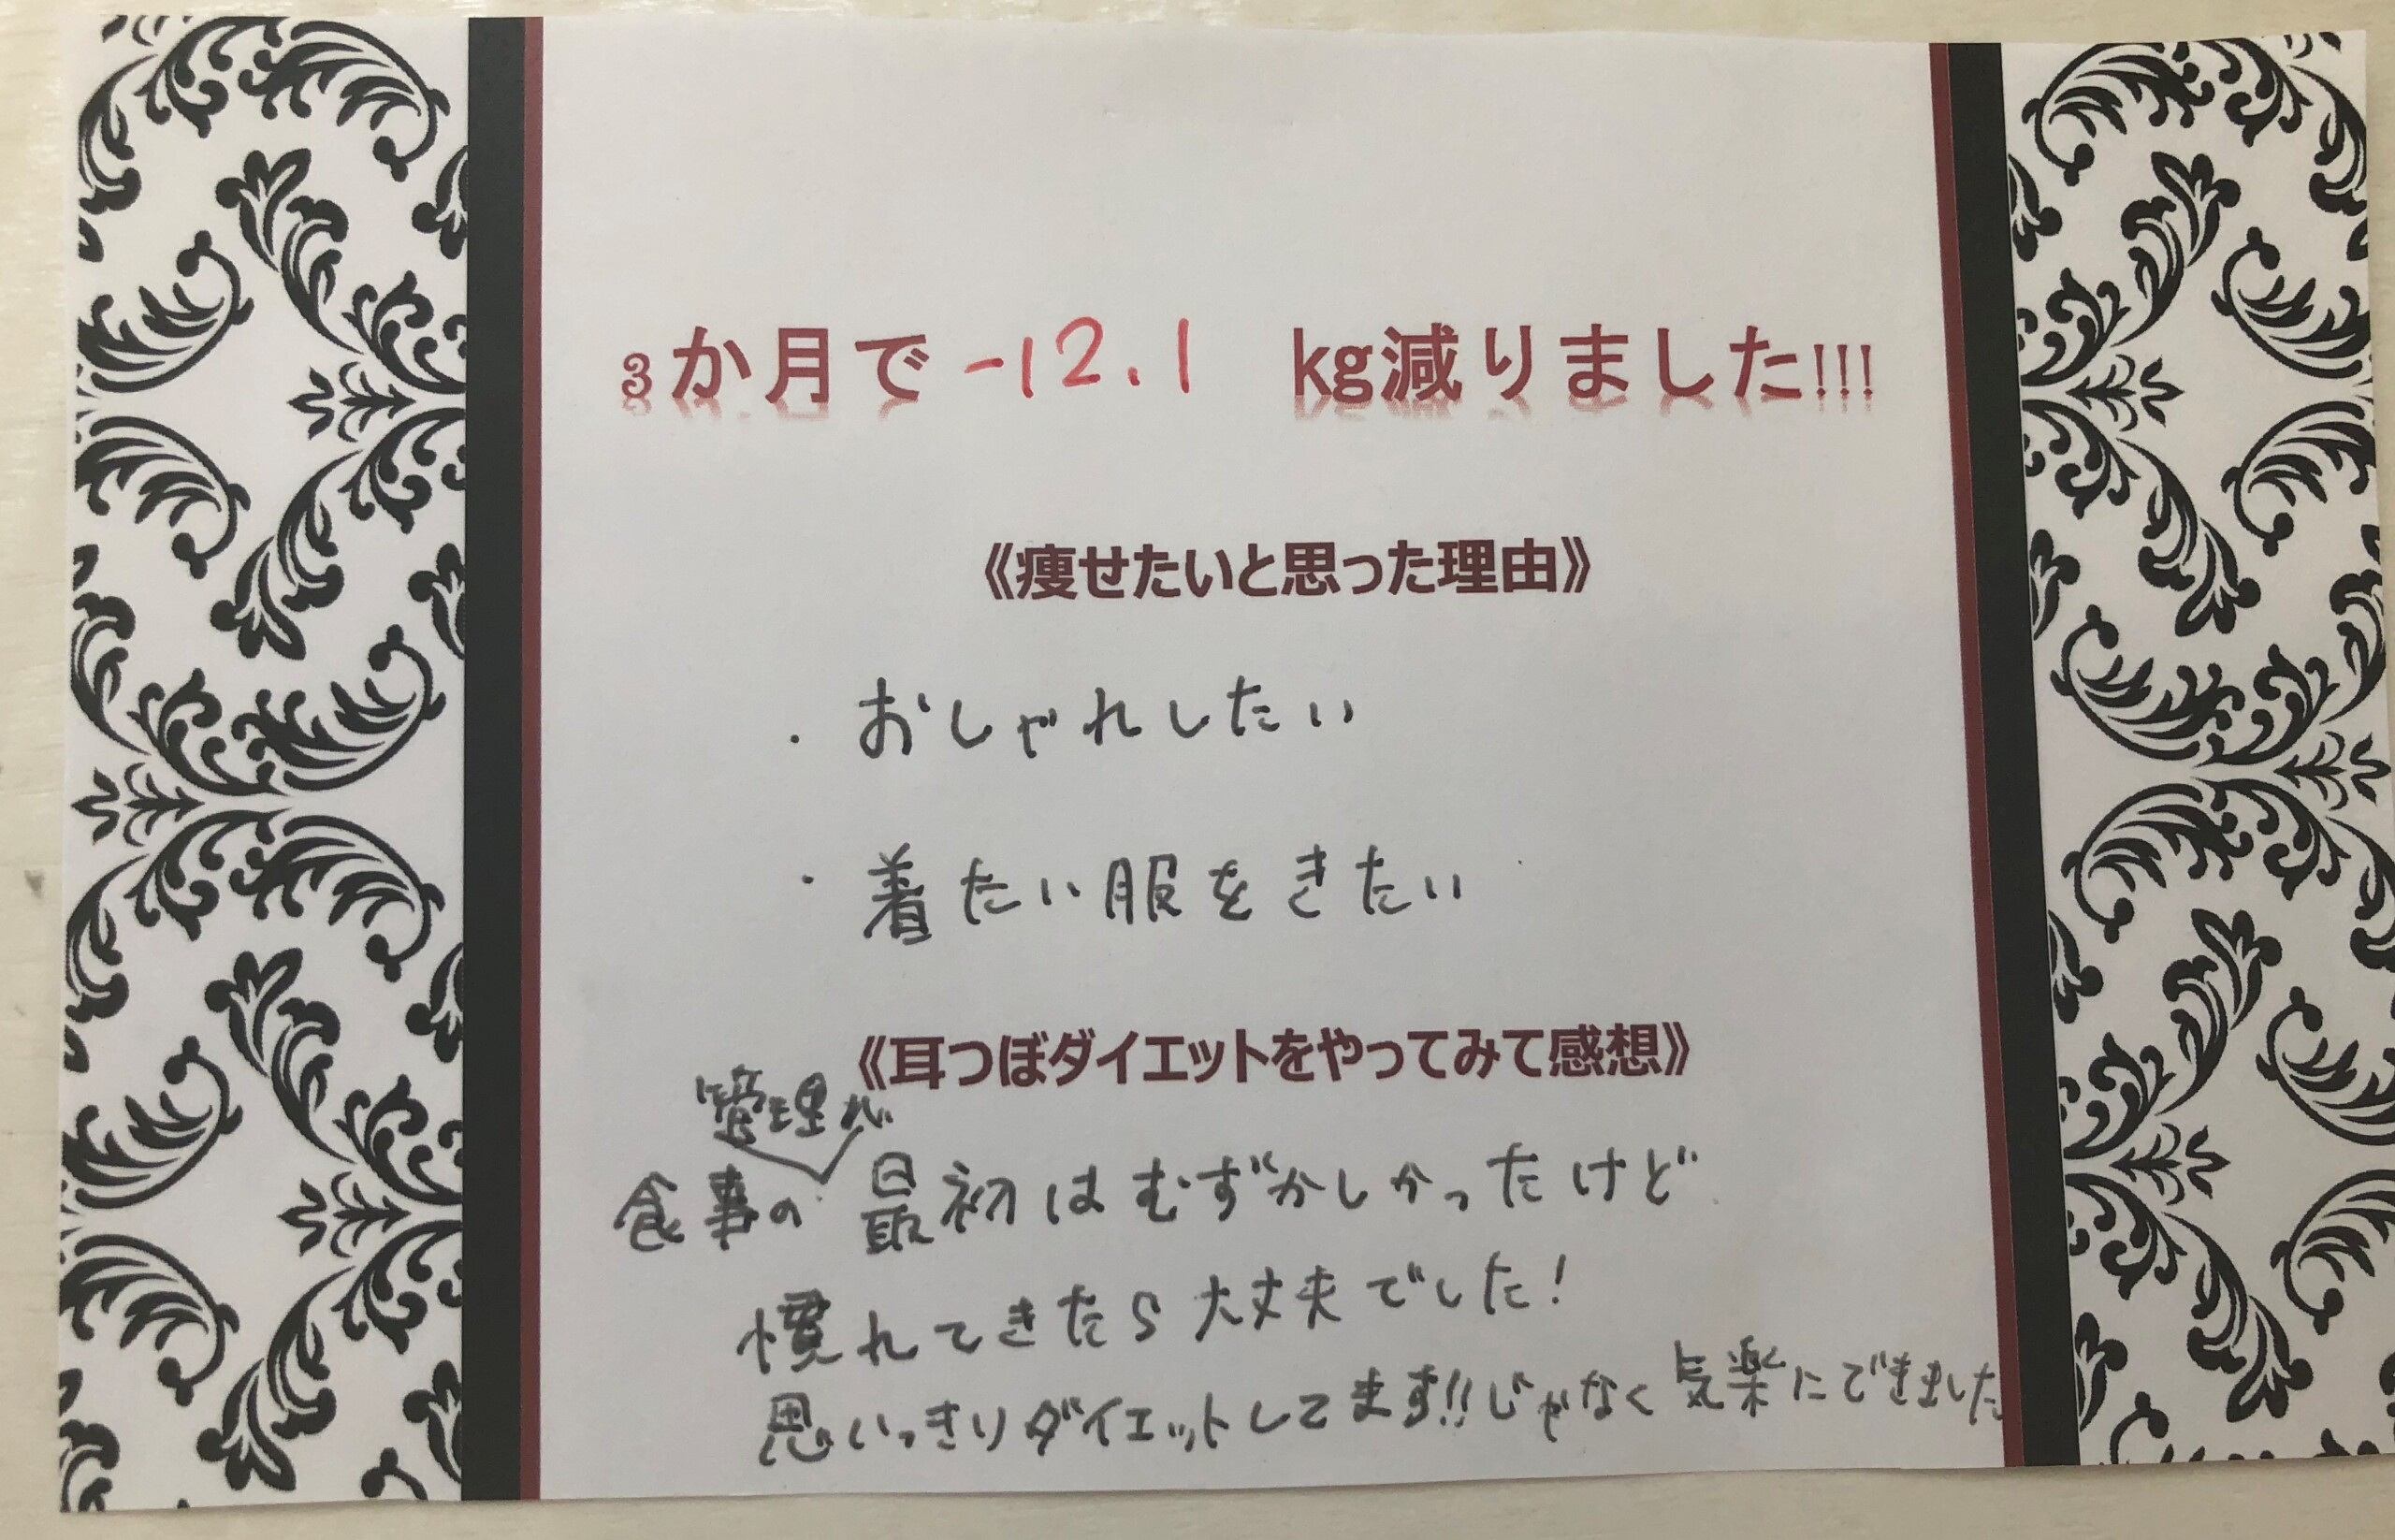 3か月で -12.1 kg減りました!!!
《痩せたいと思った理由》
・おしゃれしたい
・着たい服をきたい
《耳つぼダイエットをやってみて感想》
管理が
食事の 最初はむずかしかったけど
慣れてきたら大丈夫でした!
思いっきりダイエットしてます!!じゃなく気楽にできました